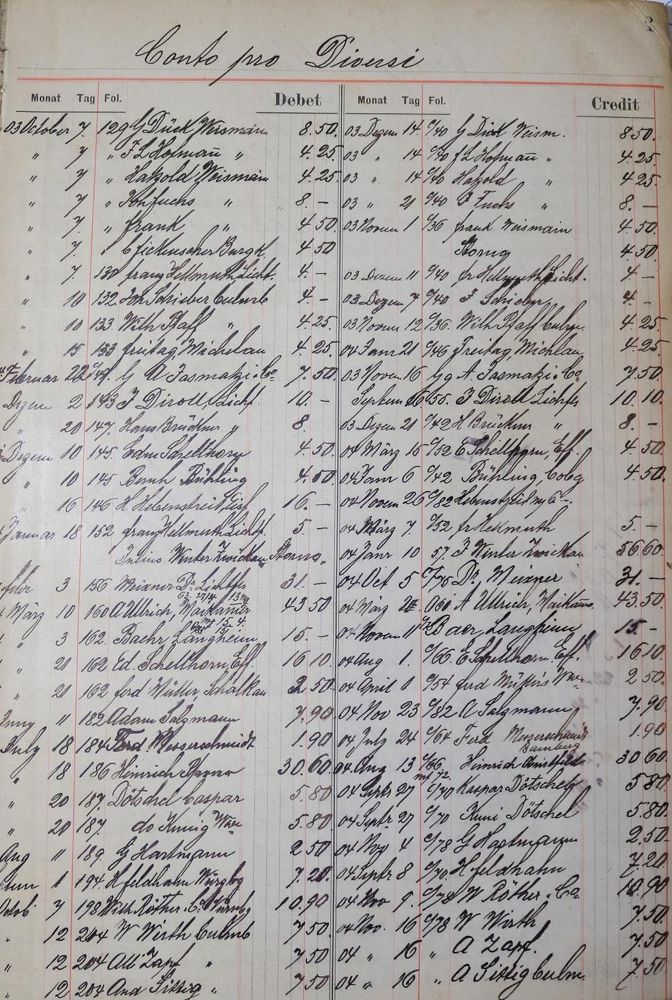 Conto pro Diversi
Monat Tag Fol. Debet Monat Tag Fol. Credit
03 October 7. 129 G Dück Weismain 8.50. 03 Dezem 14 c/40 G Dück Weism. 8.50.
" 7 " F L Hofmann " 4.25. 03 " 14 c/40 F L Hofmann " 4.25.
" 7 " Hatzold Weismain 4.25 03 " 14 c/40 Hatzold " 4.25
" 7 " Joh Fuchs " 8.— 03 " 21 c/40 Fuchs " 8.—
" 7. " Frank " 4.50 03 Novem 1 c/36 Frank Weismain 4.50
" 7. " Burgk. 4.50 Storno 4.50
" 7. 130 Franz Hellmuth Licht. 4.— 03 Dezem 11 c/40 Fr Hellmuth Licht. 4—
" 10 132 Joh Schrieber Culmb 4.— 03 Dezem 7 c/40 J Schrieber 4—
" 10 133 Wilh Pfaff " 4.25. 03 Novem 12 c/36. Wilh Pfaff Culm 4.25
" 15 133 Freitag, Michelau 4.25. 04 Janr 21 c/46 Freitag, Michelau 4.25.
Februar 22 G A Jasmatzi & Co 7.50. 03 Novem 16 G A. Jasmatzi & Co 7.50
Dezem 2 143 J Diroll Licht 10.— Septem 16 c/50. J Diroll Lichtfs 10.10.
" 20 147. Hans Brückner " 8. 03 Dezem 21 c/42 H Brückner " 8.—
Dezem 10 145 Edm Schelhorn 4.50. 04 März 15 c/52 E Schelhorn, Eff. 4.50.
" 10 145 Bernh Bühling 4.50 04 Janr 6 c/42. Bühling, Cobg 4.50.
" 16 146 H Hebenstreit 16.— 04 Novem 26 c/82 Hebenstreit
Januar 18 152 Franz Hellmuth Licht. 5— 04 März 7 c/52, Fr Hellmuth 5.—
Julius Winter Zwickau Storno. 04 Janr 10 57. J Winter Zwickau 56 60
3 156 Meixner Dr. Lichtfs 31.— 04 Oct 5 c/76 Dr. Meixner 31.—
März 10 160 A Ullrich, 43 50 04 März A Ullrich, 43.50.
" 3 162. Baehr Langheim 15.— 04 Novem 11 Baer Langheim 15.—
" 21 162 Ed. Schelhorn, Eff. 16 10. 04 Aug 1. c/66 E Schelhorn. Eff. 16 10.
" 21 162 Ferd Müller Schalkau 2.50. 04 April 1 c/54 Ferd 2.50.
Juny 11 182 Adam Salzmann 7.90 04 Nov 23 c/82 A Salzmann 7.90
July 18 184 Ferd Messerschmidt 1.90 04 July 24 c/64 Ferd Messerschmidt Bamberg 1.90
" 18 186 Heinrich 30.60 04 Aug 13 c/66 Heinrich 30 60.
" 20 187 Dötschel Caspar 5.80 04 Septr 27 c/70 Kaspar Dötschel 5.80
" 20 187. do 5.80 04 Septr 27 c/70 Dötschel 5.80.
Aug 11 189. G Hartmann 2 50 04 Nov 4 c/78 G Hartmann 2.50
1 194. H Feldhahn Würzbg 7.20. 04 Septr 8 c/70 H Feldhahn 7.20
Octob 7 198 Wilh Röther & Co 10.90 04 Nov 9. c/78 W Röther & Co 10.90
" 12 204 W Wirth Culmb 7 50 04 Nov. 16 c/78 W Wirth 7.50
" 12 204 Alb Zapf " 7 50 04 " 16 " A Zapf. 7.50
" 12 204 And Sittig " 7 50 04 " 16 " A Sittig Culm. 7 50